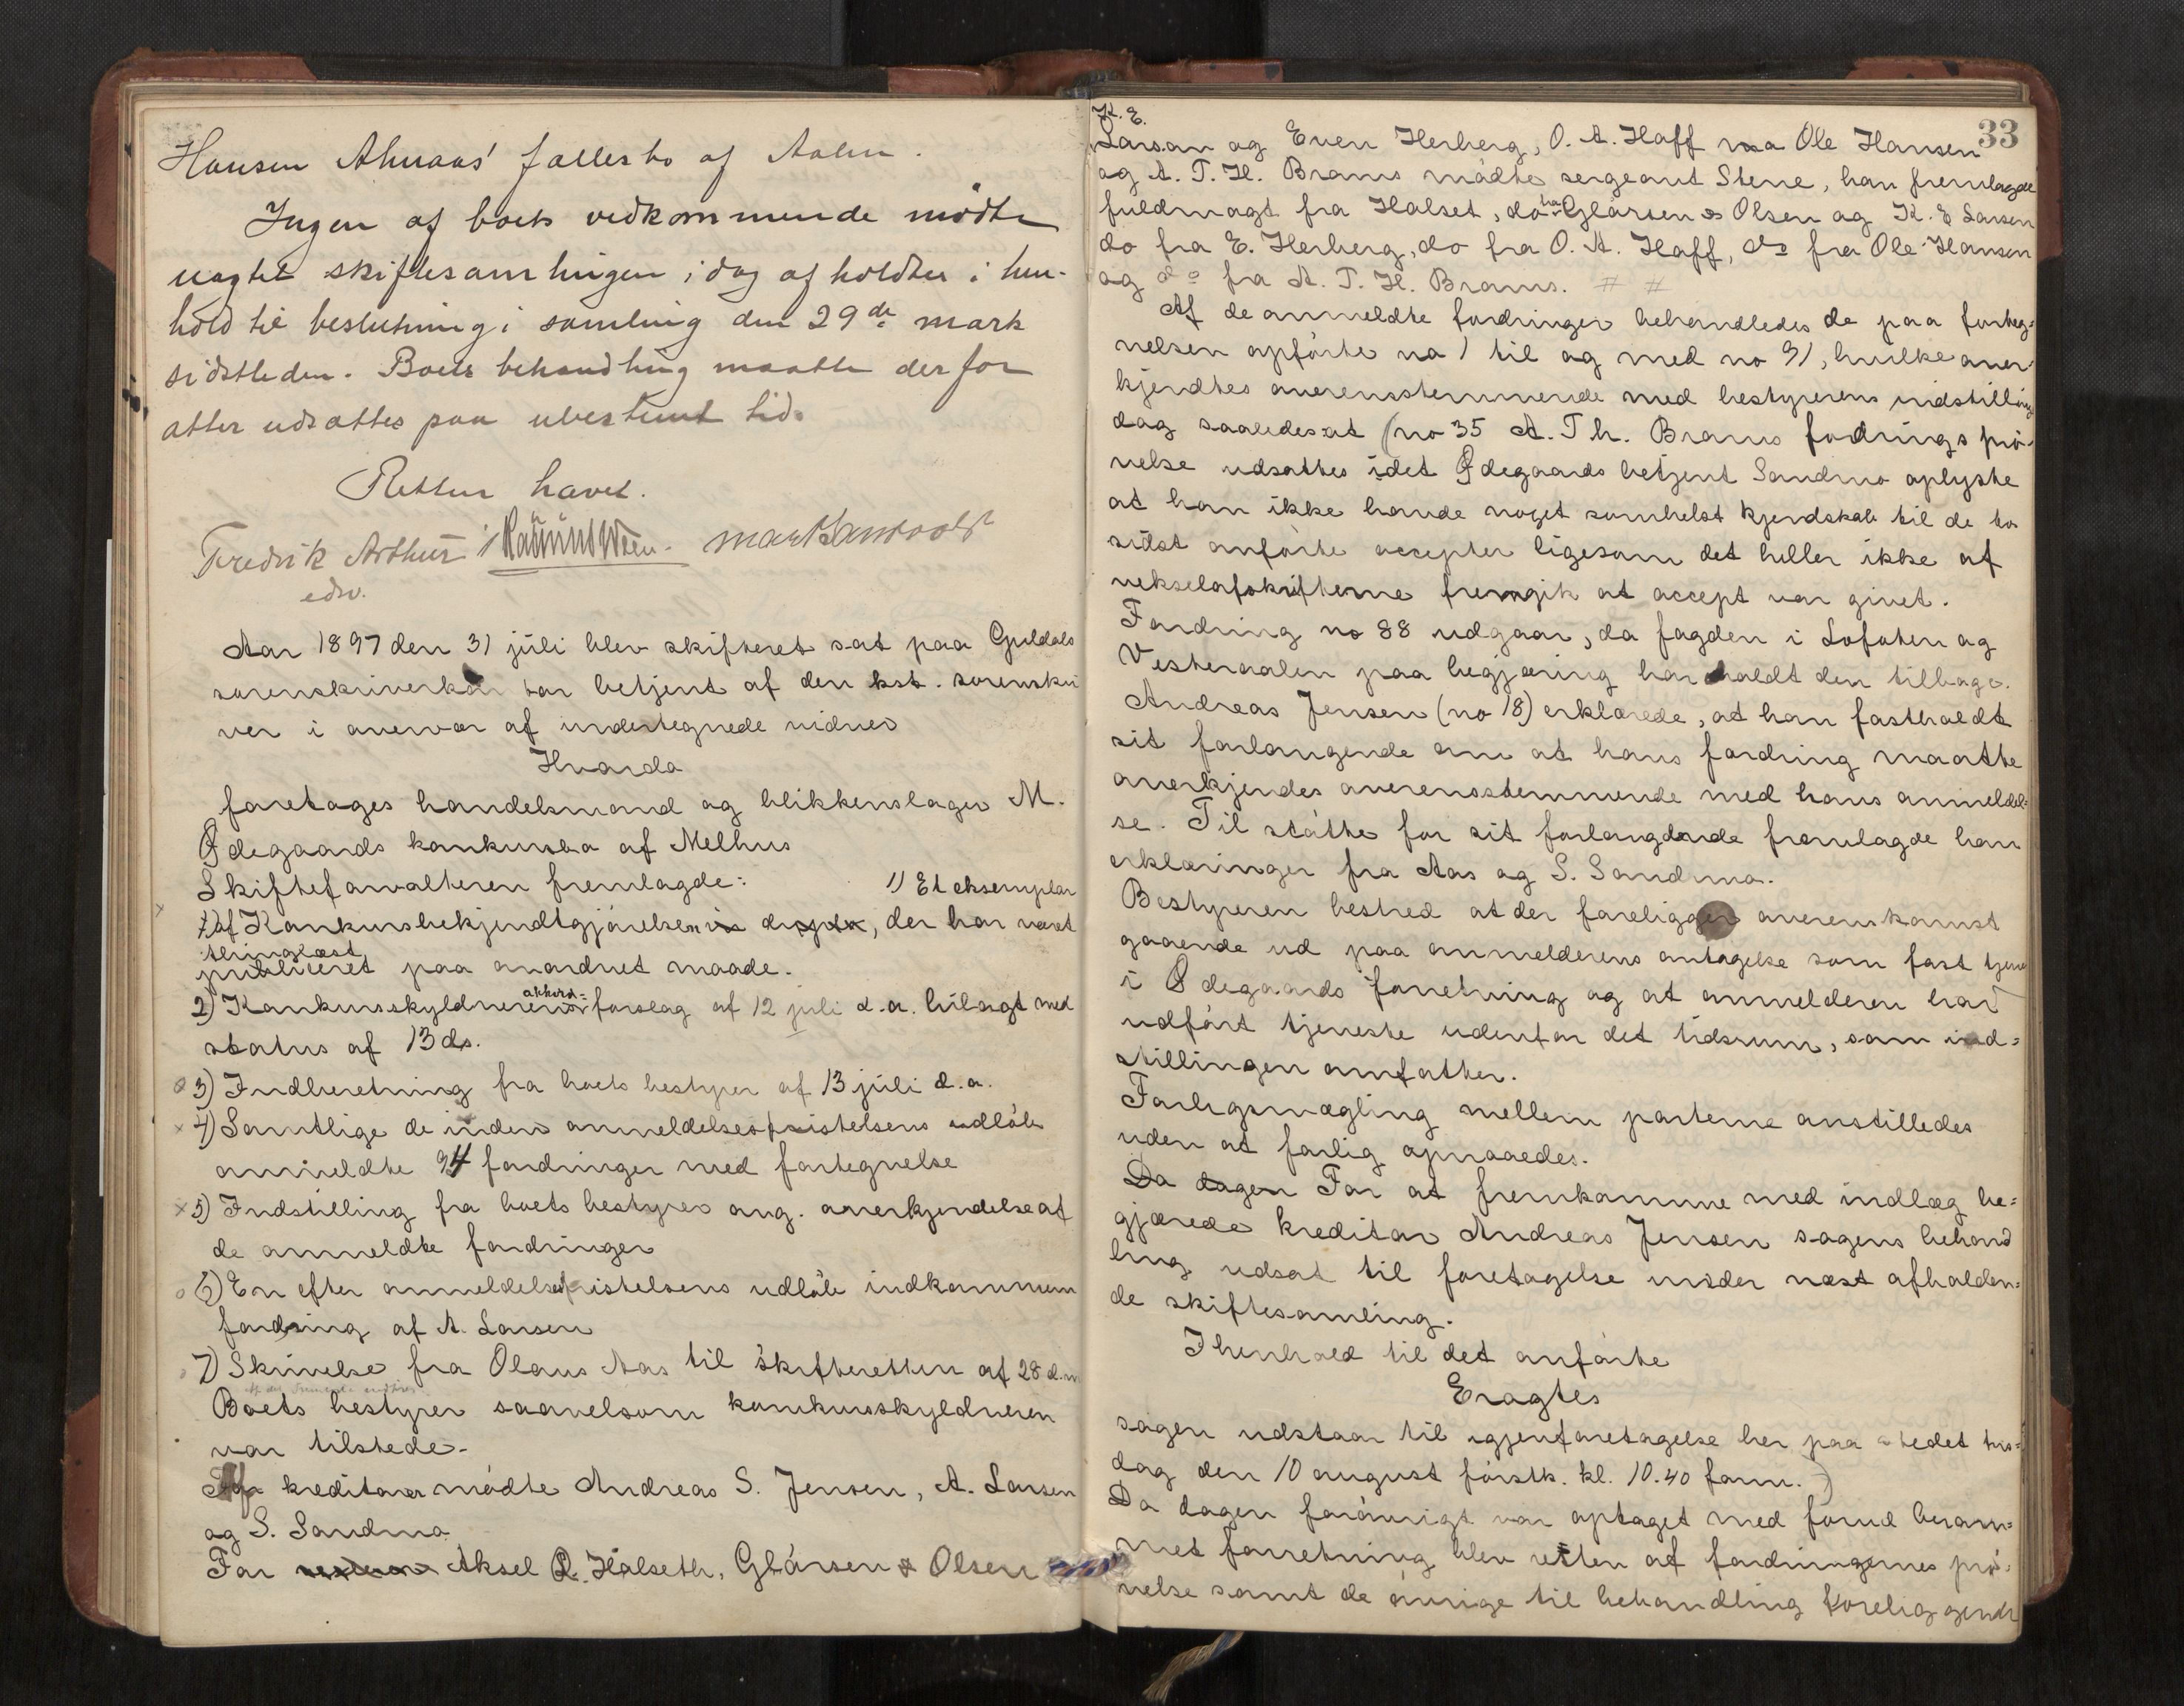 Hansen Ahuaas' fællesbo af Aalen.
Ingen af boets vedkommende mødte
uagtet skiftesamlingen idag afholdtes i hen-
hold til beslutning i samling den 29de marts
sidstleden. Boets behandling maatte derfor
atter udsættes paa ubestemt tid.
Retten hævet.
Fredrik Arthur
edv.
Aar 1897 den 31 júli blev skifteret sat paa Guldals
sorenskriverkontor betjent af den kst. sorenskri
ver i overvær af undertegnede vidner
Hvorda
foretages handelsmand og blikkenslager M.
Ødegaards konkursbo af Melhus
Skifteforvalteren fremlagde: 1) Et eksemplar
af Konkursbekjendtgjörelsen, der har været
thinglæst
publiceret paa anordnet maade.
2) Konkursskyldnerens akkord-forslag af 12 juli d.a. bilagt med
status af 13 ds.
3) Indberetning fra boets bestyrer af 13 júli d.a.
4) Samtlige de inden anmeldelsesfristelsens udlöb
anmeldte 94 fordringer med fortegnelse
5) Indstilling fra boets bestyrer ang. anerkjendelse af
de anmeldte fordringer
6) En efter anmeldelsesfristelsens udlöb indkommen
fordring af A. Larsen
7) Skrivelse fra Olaus Aas til skifteretten af 28 d.m
Boets bestyrer saavelsom konkursskyldneren
var tilstede.
Af kreditorer mödte Andreas S. Jensen, A. Larsen
og S. Sandmo
For Aksel R. Halseth, Glärsen & Olsen
33
K. E.
Larsen og Even Herberg, O. A. Hoff Ole Hansen
og A. T. H. Brauns mödte sergeant Stene, han fremlagde
fuldmagt fra Halset, do fra Glärsen & Olsen og K. E Larsen
do fra E. Herberg, do fra O. A. Hoff, do fra Ole Hansen
og do fra A. T. H. Brauns. # #
Af de anmeldte fordringer behandledes de paa forteg-
nelsen opförte no 1 til og med no 91, hvilke aner-
kjendtes overensstemmende med bestyrerens indstilling
dog saaledes at (no 35 A. Th. Brauns fordrings prö-
velse udsattes idet Ødegaards betjent Sandmo oplyste
at han ikke havde noget somhelst kjendskab til de to
sidst anförte accepter ligesom det heller ikke af
vekselafskrifterne fremgik at accept var givet.
Fordring no 88 udgaar, da fogden i Lofoten og
Vesteraalen paa begjæring har holdt den tilbage.
Andreas Jensen (no 18) erklærede, at han fastholdt
sit forlangende om at hans fordring maatte
anerkjendes overensstemmende med hans anmeldel-
se. Til stötte for sit forlangende fremlagde han
erklæringer fra Aas og S. Sandmo.
Bestyreren bestred at der foreligger overenskomst
gaaende ud paa anmelderens antagelse som fast tjener
i Ødegaards forretning og at anmelderen har
udfört tjeneste udenfor det tidsrum, som ind-
stillingen omfatter.
Forligsmægling mellem parterne anstilledes
uden at forlig opnaaedes.
Da dagen For at fremkomme med indlæg be-
gjærede kreditor Andreas Jensen sagens behand
ling udsat til foretagelse under næst afholden-
de skiftesamling.
Ihenhold til det anförte
Eragtes
sagen udstaar til igjenforetagelse her paa stedet tirs-
dag den 10 august förstk. kl. 10.40 form.)
Da dagen foröuvrigt var optaget med forud beram-
met forretning blev resten af fordringernes prö-
velse samt de övrige til behandling foreliggende